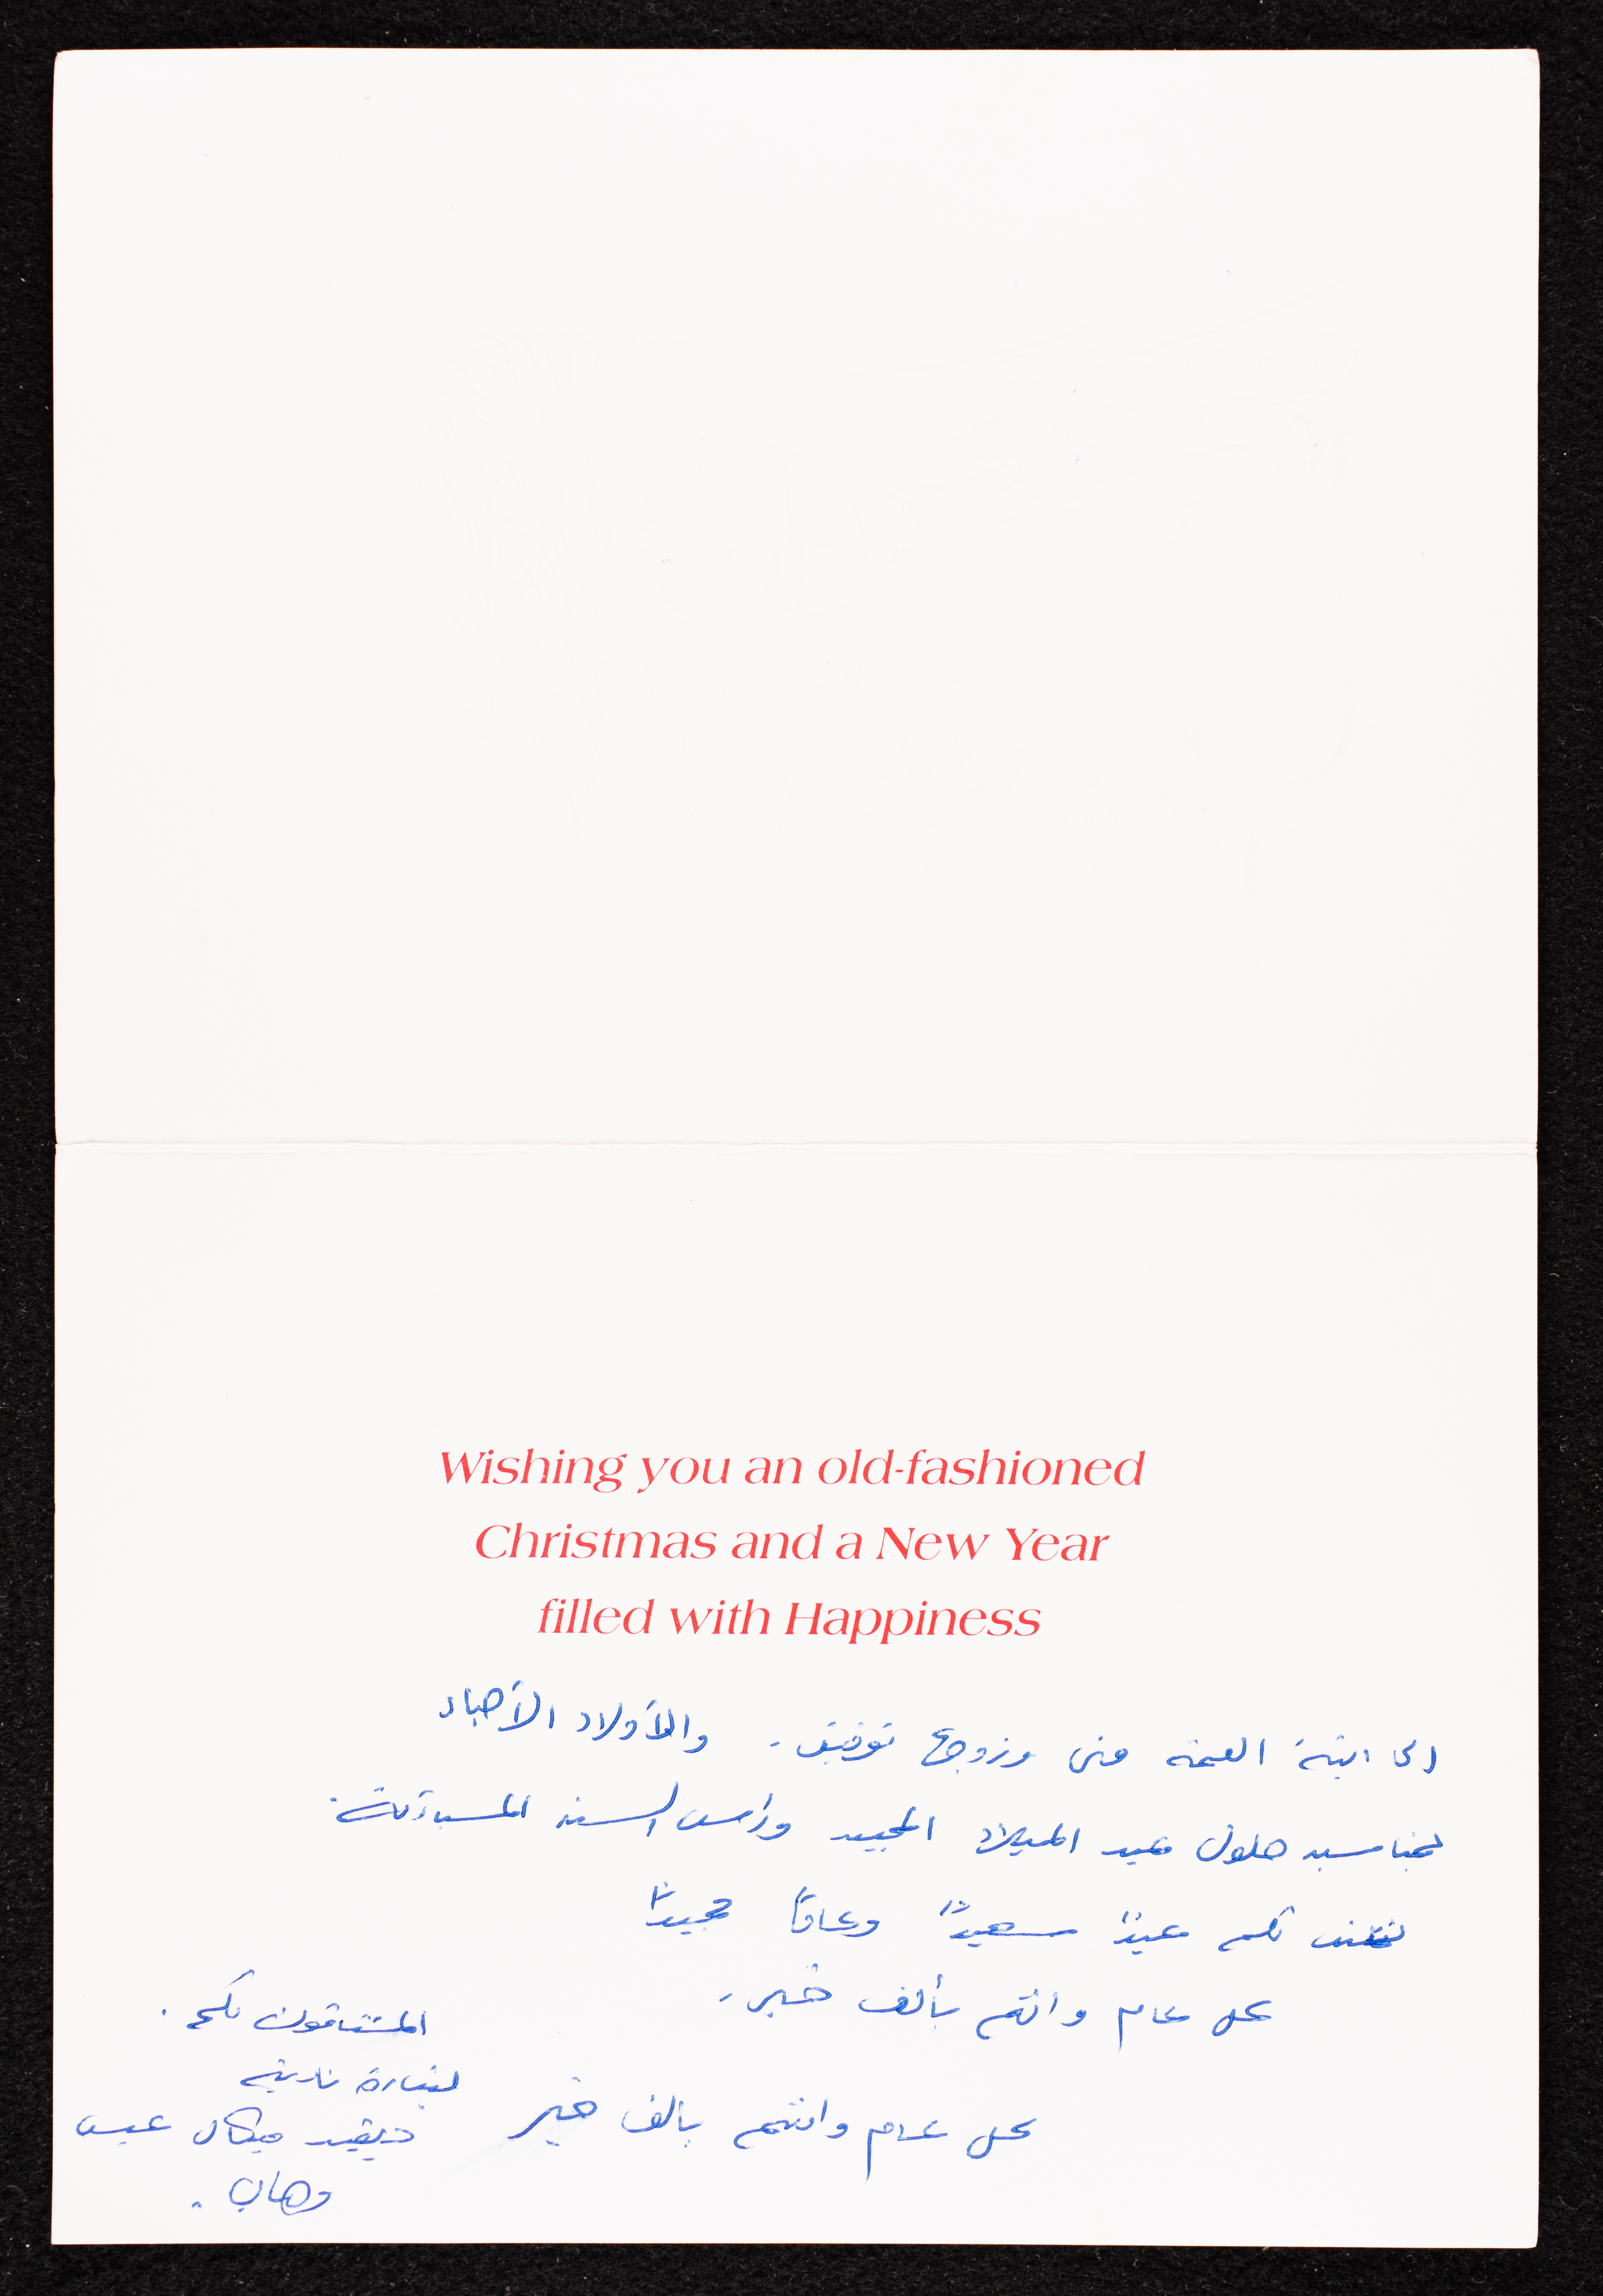 Wishing you an old-fashioned
Christmas and a New Year
filled with Happiness
الى ابنة العمة منى وزوجها توفيق. والأولاد الأحباء
بمناسبة حلول عيد الميلاد المجيد ورأس السنة المباركة.
نتمنى لكم عيدًا سعيدًا وعامًا مجيدًا
كل عام وانتم بألف خير.
المشتاقون لكم.
نادية
كل عام وانتم بالف خير
ديفيد ميكال عيسى
وهاب.